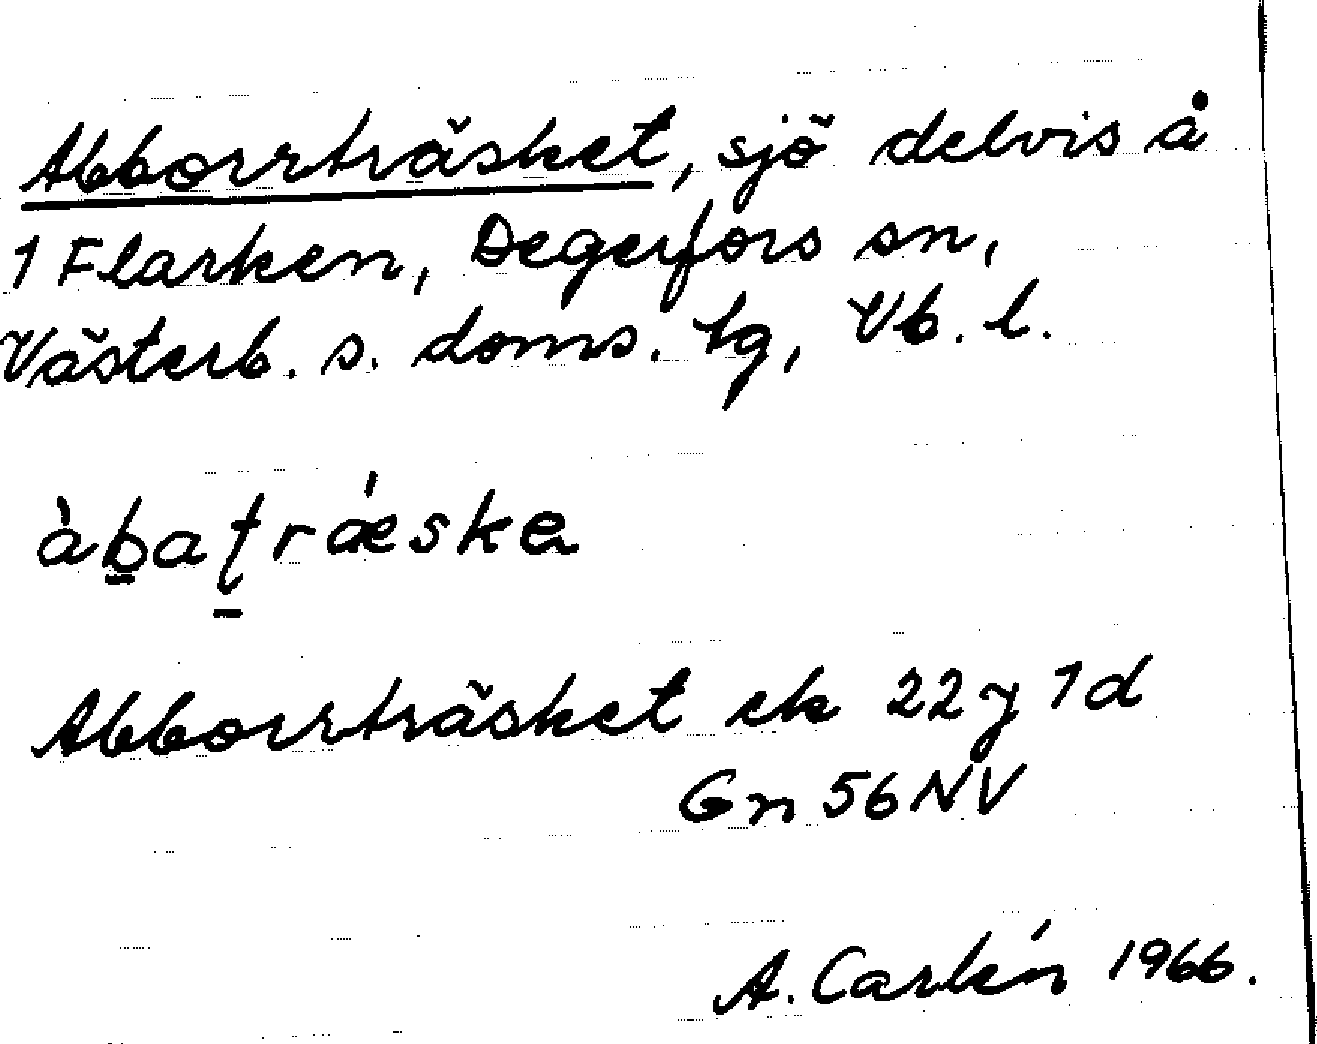 Abborrträsket, sjö delvis å
1 Flarken, Degerfors sn,
Västerb. s. doms. lg, Vb. l.
àb̲at̲ráeske
Abborrträsket ek 22 y 1 d
Gn 56 NV
A. Carlén 1966.